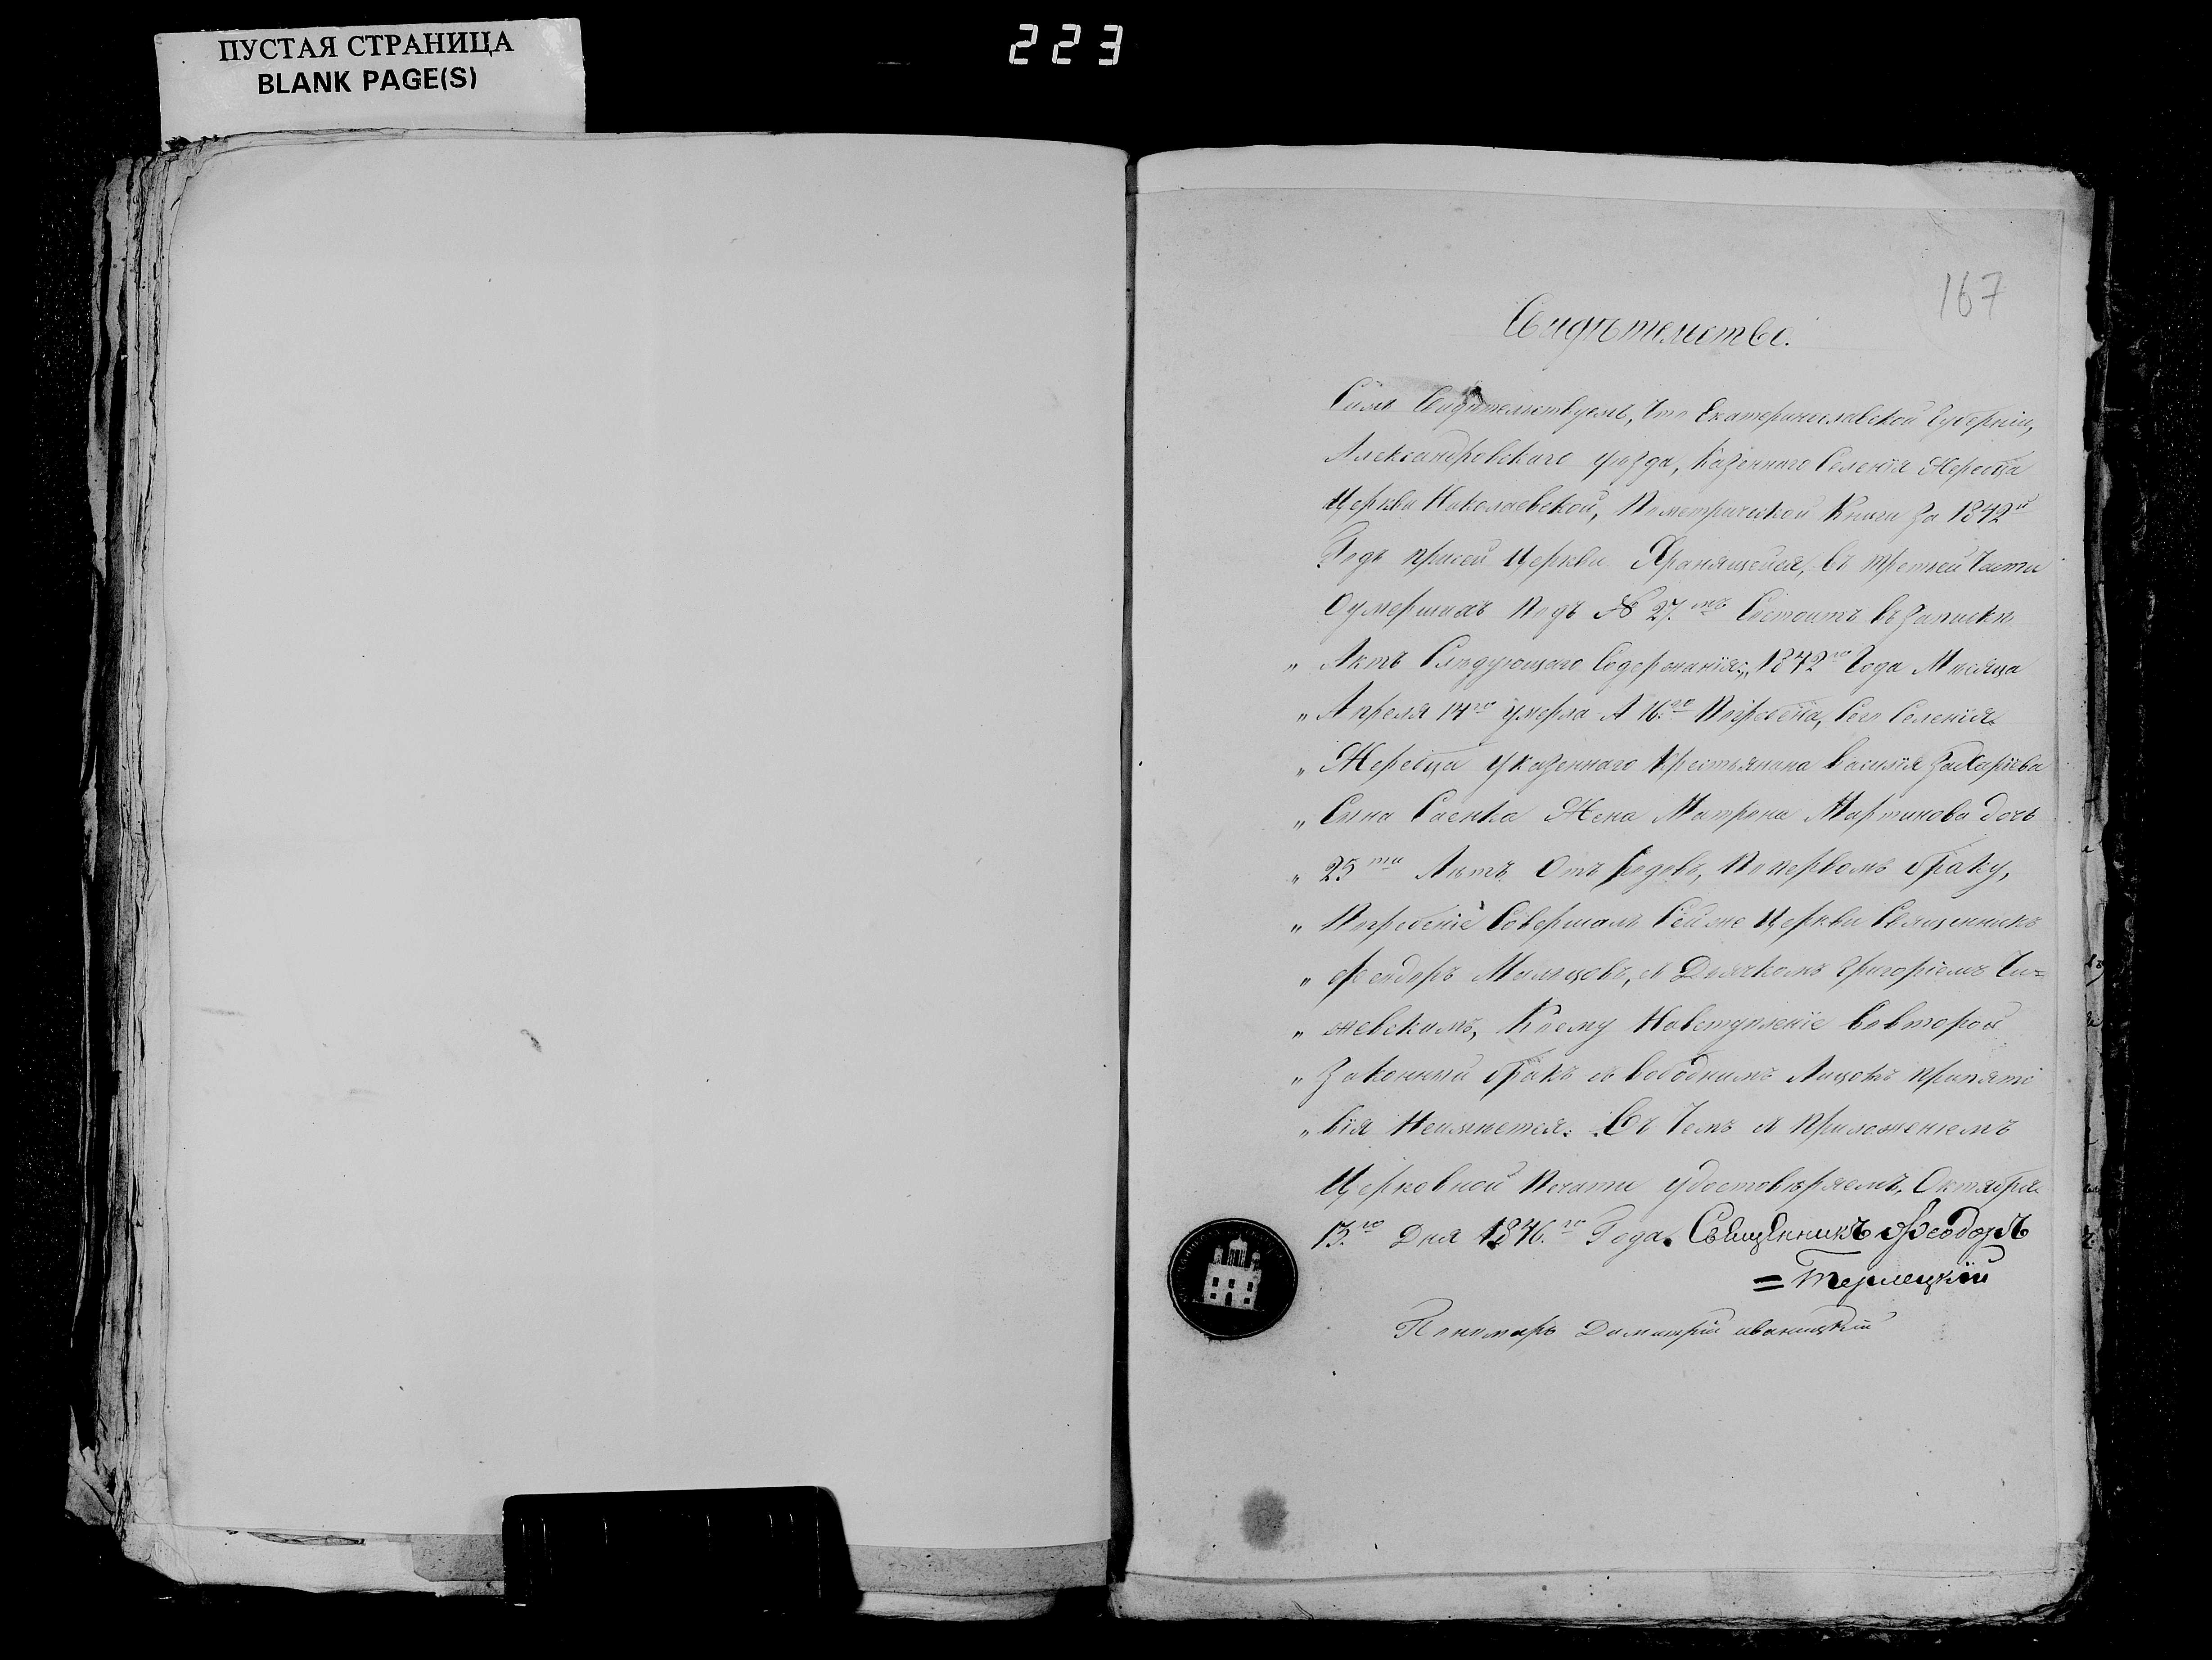 ПУСТАЯ СТРАНИЦА
BLANK PAGE(S)
223
167
Свидѣтельство.
Симъ Свидѣтельствуемъ, Что Екатеринославской Губерніи,
Александровскаго уѣзда, Казеннаго Селенія Жеребца
Церкви Николаевской, Пометрической Книги За 1842й
Годъ присей Церкви Хранящейся, въ третей Части
Оумершихъ Подъ № 27.мъ Состоитъ въ Запискѣ
„ Актъ Слѣдующаго Содержанія: „1842го Года Мѣсяца
„ Апреля 14го умерла А 16.го Погребена, Сего Селенія
„ Жеребца Указеннаго Крестьянина Василія Захаріева
„ Сына Саенка Жена Матрона Мартинова дочь
„ 25ти Лѣтъ Отъ Родовъ, Поперьвомъ браку,
„ Погребеніе Совершалъ Сейже Церкви Священникъ
„ Феодоръ Мильцовъ, съ Дьячкомъ Григоріемъ Чи=
„ жевскимъ, Коему Навступленіе Вовторой
„ Законный бракъ съ Свободнимъ Лицомъ припятс
„ вія Неимѣется. Въ Чемъ съ Приложеніемъ
Церковной Печати удостовѣряемъ. Октября
13.го Дня 1846.го Года. Священникъ Феодоръ
= Терлецкій
Пономарь Димитрій иваницкій